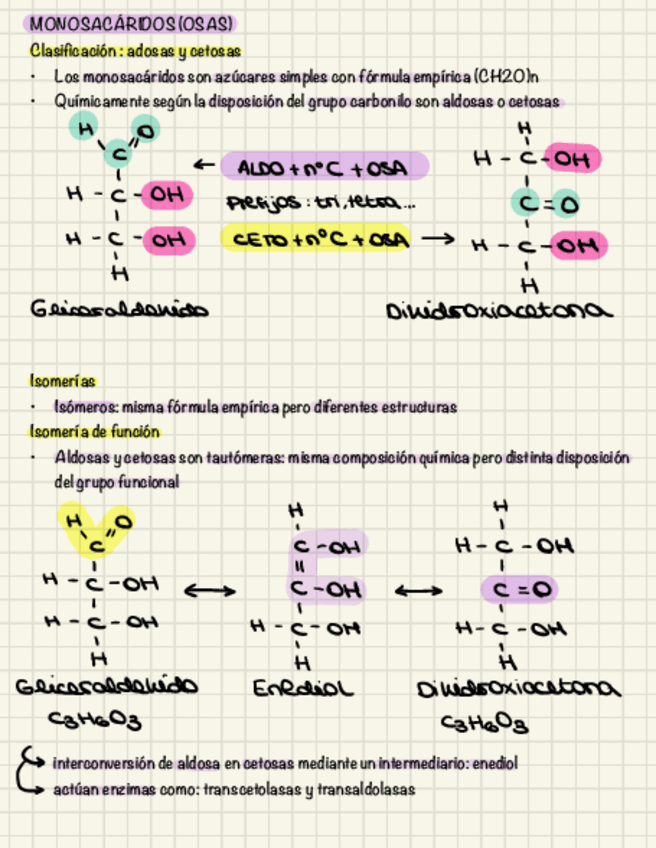 MONOSACÁRIDOS (OSAS)
Clasificación: adosas y cetosas
· Los monosacáridos son azúcares simples con fórmula empírica (CH2O)n
· Químicamente según la disposición del grupo carbonilo son aldosas o cetosas
H O
C
H - C - OH
H - C - OH
H
Gliceraldehido
← ALDO + nºC + OSA
Prefijos: tri, tetra...
CETO + nºC + OSA →
H
H - C - OH
C = O
H - C - OH
H
Dihidroxiacetona
Isomerías
· Isómeros: misma fórmula empírica pero diferentes estructuras
Isomería de función
· Aldosas y cetosas son tautómeras: misma composición química pero distinta disposición
del grupo funcional
H O
C
H - C - OH
H - C - OH
H
Gliceraldehido
C3H6O3
H
C - OH
C - OH
H - C - OH
H
Enediol
H
H - C - OH
C = O
H - C - OH
H
Dihidroxiacetona
C3H6O3
→ interconversión de aldosa en cetosas mediante un intermediario: enediol
→ actúan enzimas como: transcetolasas y transaldolasas